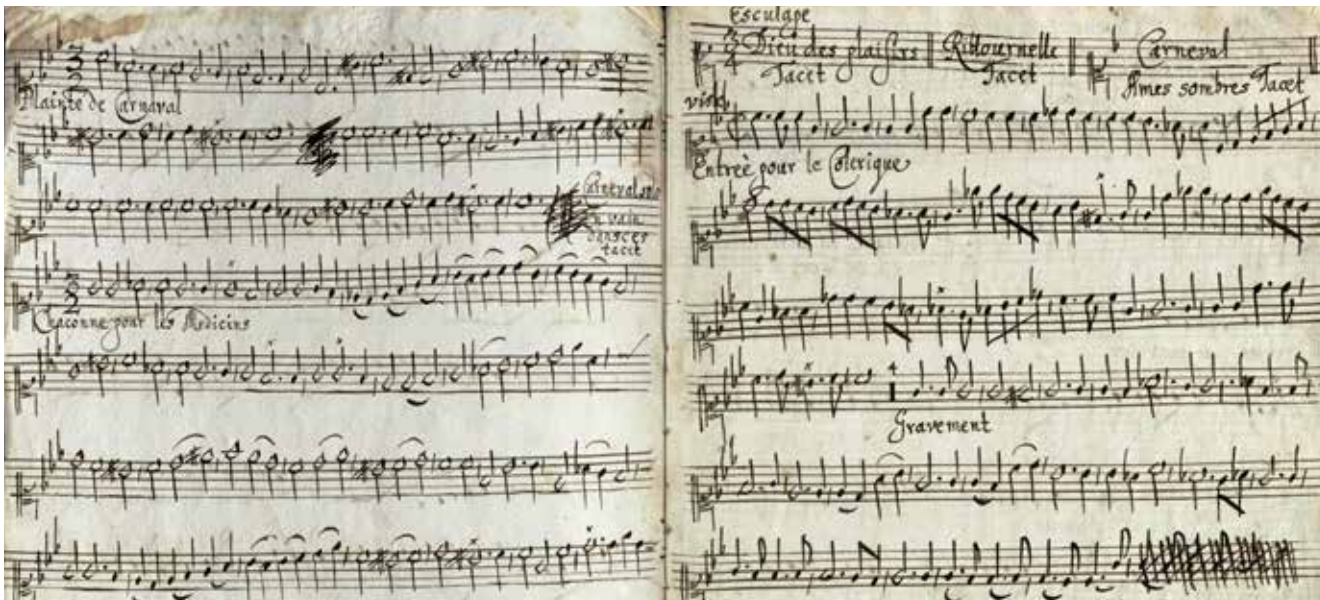 Plainte de Carnaval
Carneval
en vain
dansces
tacet
Chaconne pour les Medicins
Esculape
Dieu des plaisirs || Ridournelle || Carneval
Tacet Tacet Ames sombres Tacet
viste
Entreè pour le Colerique
Gravement